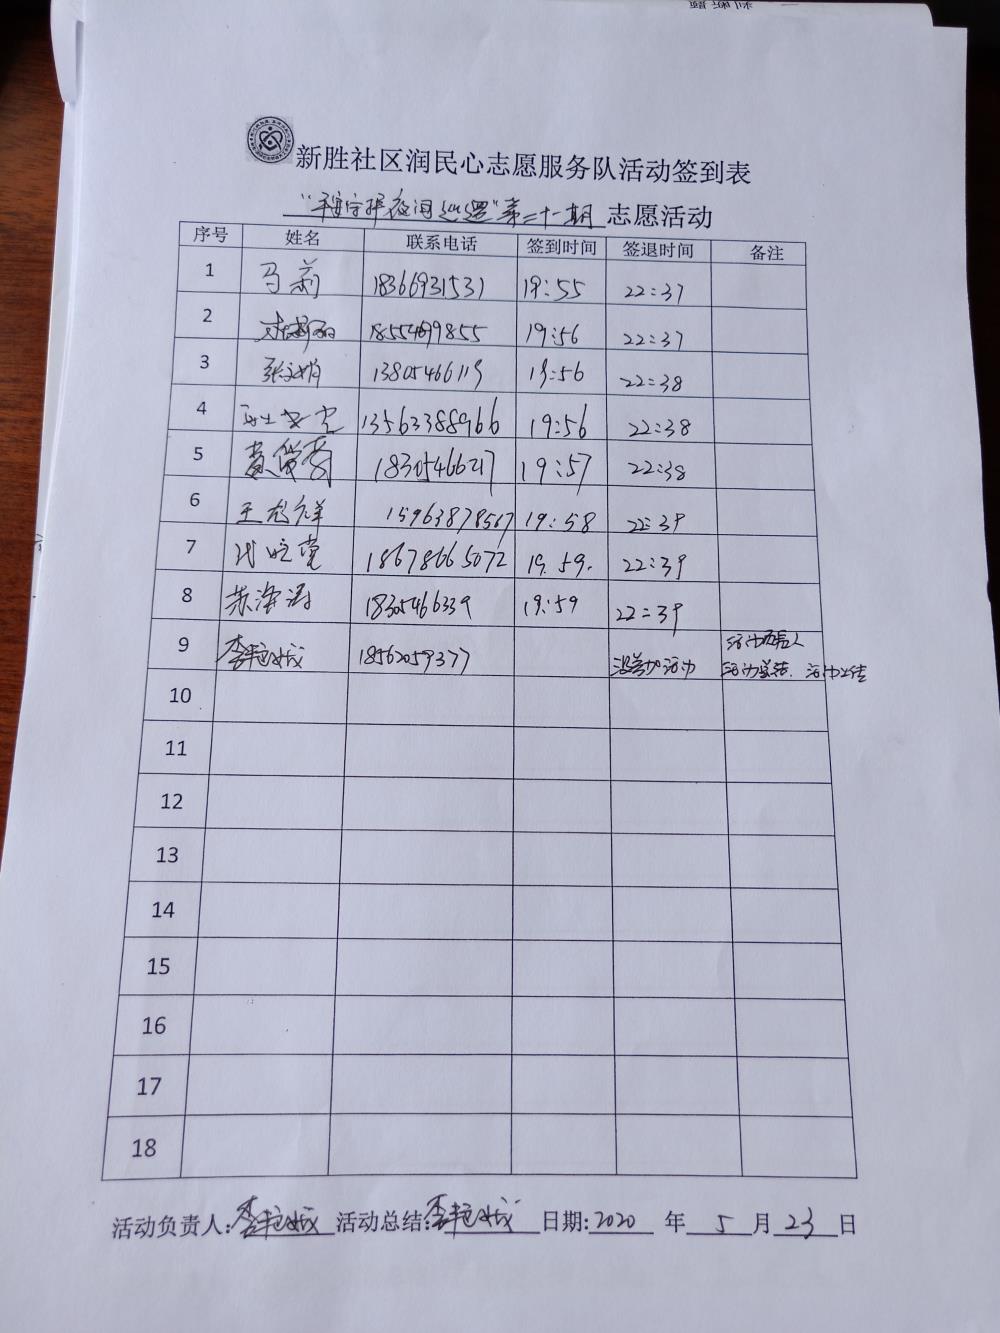 新胜社区润民心志愿服务队活动签到表
夜间巡逻"第二十一期 志愿活动
序号 姓名 联系电话 签到时间 签退时间 备注
1 马莉 18366931531 19:55 22:37
2 19:56 22:37
3 张文娟 13805466119 19:56 22:38
4 13563388966 19:56 22:38
5 18305466217 19:57 22:38
6 王彪祥 15963878567 19:58 22:39
7 代晓莹 18678665072 19:59. 22:39
8 苏海涛 18305466339 19:59 22:39
9 李艳娥 18562059377 没参加活动 活动负责人
活动总结、活动上传
10
11
12
13
14
15
16
17
18
活动负责人:李艳娥 活动总结:李艳娥 日期:2020 年 5 月 23 日